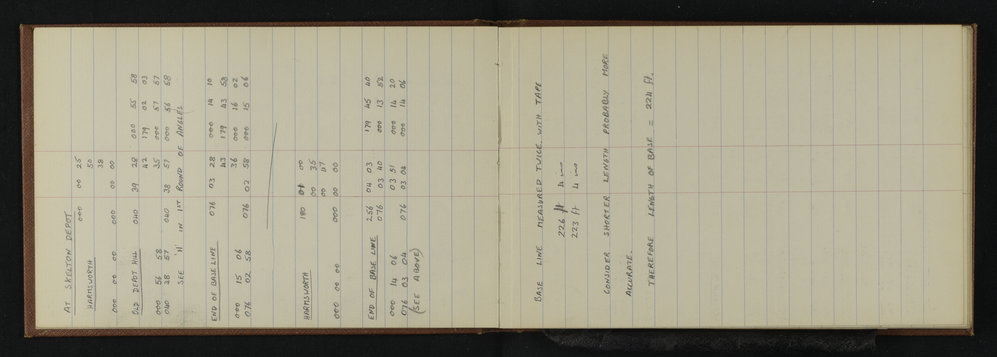 AT SKELTON DEPOT
000 00 25
HARMSWORTH 50
38
000 00 00 000 00 00
OLD DEPOT HILL 040 39 28 000 55 58
42 179 02 03
000 56 58 35 000 57 57
040 38 57 040 38 57 000 56 58
SEE 'H' IN 1ST ROUND OF ANGLES
END OF BASE LINE 076 03 28 000 14 10
43 179 43 58
000 15 06 36 000 16 02
076 02 58 076 02 58 000 15 06
180 01 00
HARMSWORTH 00 35
00 47
000 00 00 000 00 00
END OF BASE LINE 256 04 03 179 45 40
076 03 40 000 13 52
000 14 06 03 51 000 14 20
076 03 04 076 03 04 000 14 06
(SEE ABOVE)
BASE LINE MEASURED TWICE WITH TAPE
226 ft 4 ins
223 ft 4 ins
CONSIDER SHORTER LENGTH PROBABLY MORE
ACCURATE.
THEREFORE LENGTH OF BASE = 224 ft.